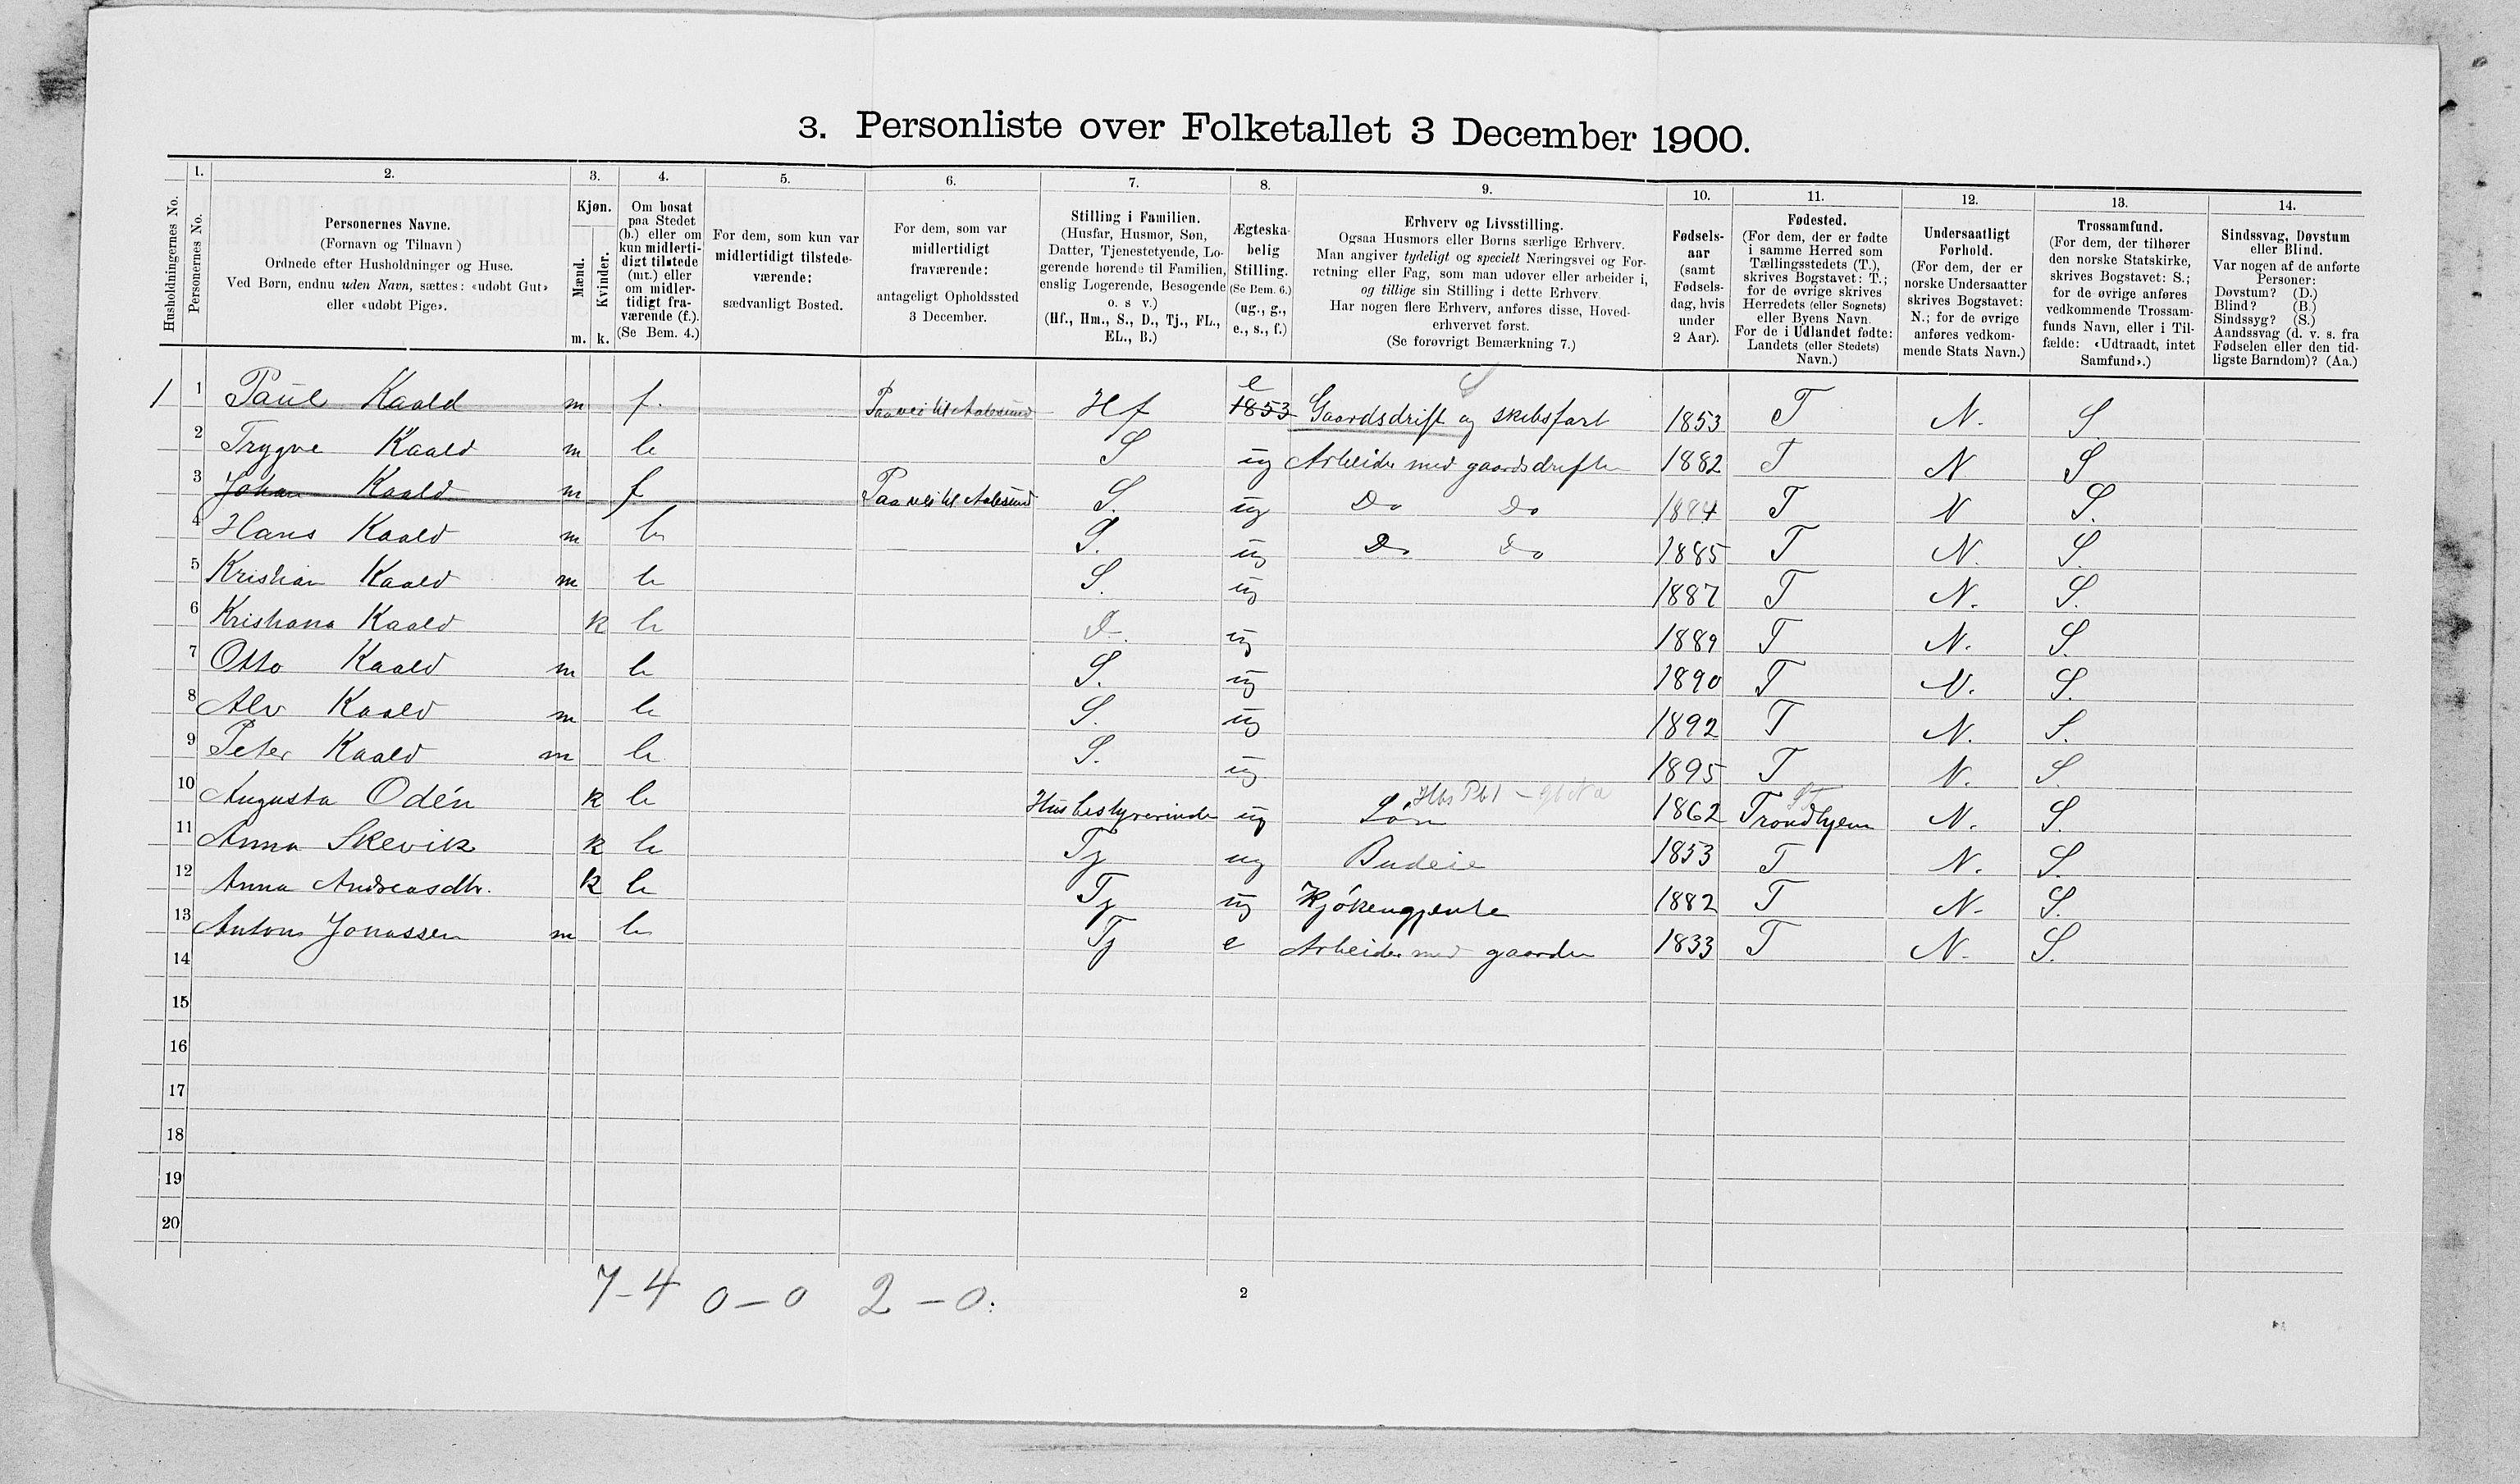 3. Personliste over Folketallet 3 December 1900.
1. 2. 3. 4. 5. 6. 7. 8. 9. 10. 11. 12. 13. 14.
Husholdningernes No.
Personernes No.
Personernes Navne.
(Fornavn og Tilnavn)
Ordnede efter Husholdninger og Huse.
Ved Børn, endnu uden Navn, sættes: «udøbt Gut»
eller «udøbt Pige».
Kjøn.
Mænd.
Kvinder.
m. k.
Om bosat
paa Stedet
(b.) eller om
kun midlerti-
digt tilstede
(mt.) eller
om midler-
tidigt fra-
værende (f.).
(Se Bem. 4.)
For dem, som kun var
midlertidigt tilstede-
værende:
sædvanligt Bosted.
For dem, som var
midlertidigt
fraværende:
antageligt Opholdssted
3 December.
Stilling i Familien.
(Husfar, Husmor, Søn,
Datter, Tjenestetyende, Lo-
gerende hørende til Familien,
enslig Logerende, Besøgende
o. s v.)
(Hf., Hm., S., D., Tj., FL.,
EL., B.)
Ægteska-
belig
Stilling.
(Se Bem. 6.)
(ug., g.,
e., s., f.)
Erhverv og Livsstilling.
Ogsaa Husmors eller Børns særlige Erhverv.
Man angiver tydeligt og specielt Næringsvei og For-
retning eller Fag, som man udøver eller arbeider i,
og tillige sin Stilling i dette Erhverv.
Har nogen flere Erhverv, anføres disse, Hoved-
erhvervet først.
(Se forøvrigt Bemærkning 7.)
Fødsels-
aar
(samt
Fødsels-
dag, hvis
under
2 Aar).
Fødested.
(For dem, der er fødte
i samme Herred som
Tællingsstedets (T.),
skrives Bogstavet: T.;
for de øvrige skrives
Herredets (eller Sognets)
eller Byens Navn.
For de i Udlandet fødte:
Landets (eller Stedets)
Navn.)
Undersaatligt
Forhold.
(For dem, der er
norske Undersaatter
skrives Bogstavet:
N.; for de øvrige
anføres vedkom-
mende Stats Navn.)
Trossamfund.
(For dem, der tilhører
den norske Statskirke,
skrives Bogstavet: S.;
for de øvrige anføres
vedkommende Trossam-
funds Navn, eller i Til-
fælde: «Udtraadt, intet
Samfund».)
Sindssvag, Døvstum
eller Blind.
Var nogen af de anførte
Personer:
Døvstum? (D.)
Blind? (B.)
Sindssyg? (S.)
Aandssvag (d. v. s. fra
Fødselen eller den tid-
ligste Barndom)? (Aa.)
1 1 Paul Kaald m f. Paa vei til Aalesund Hf e 1853 Gaardsdrift og skibsfart 1853 T N. S.
2 Trygve Kaald m b S ug Arbeider med gaardsdriften 1882 T N S
3 Johan Kaald m f Paa vei til Aalesund S. ug Do Do 1884 T N S.
4 Hans Kaald m b S. ug Do Do 1885 T N. S.
5 Kristian Kaald m b S. ug 1887 T N. S.
6 Kristiana Kaald k b D. ug 1889 T N. S.
7 Otto Kaald m b S. ug 1890 T N. S.
8 Alv Kaald m b S. ug 1892 T N. S.
9 Peter Kaald m b S. ug 1895 T N. S.
10 Augusta Odén k b Husbestyrerinde ug Løn 1862 Trondhjem N. S.
11 Anna Skevik k b Tj ug Budeie 1853 T N. S.
12 Anna Andreasdtr. k b Tj ug Kjökengjente 1882 T N. S.
13 Anton Jonassen m b Tj e Arbeider med gaarden 1833 T N. S.
14
15
16
17
18
19
20
7-4 0-0 2-0.
2